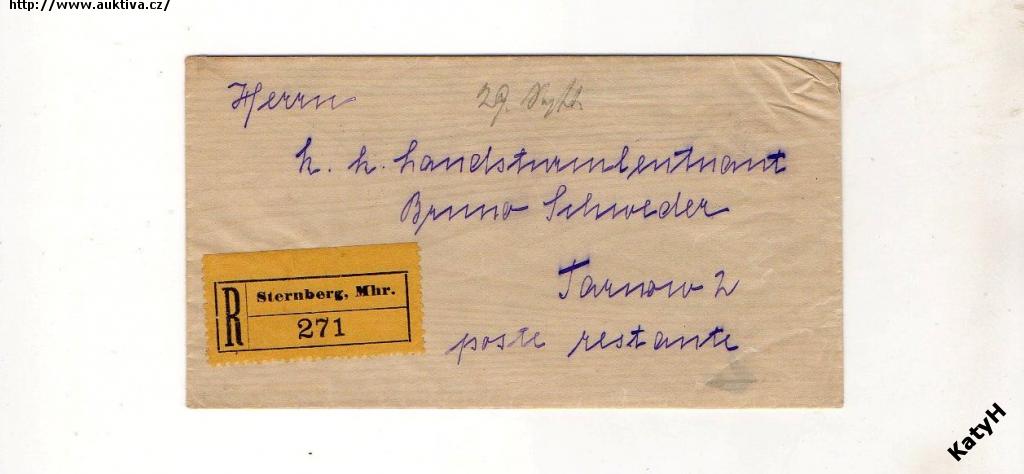 http://www.auktiva.cz/
Herrn
29.
k. k. Landsturmleutnant
Bruno Schweder
Tarnow 2
poste restante
R
Sternberg, Mhr.
271
KatyH